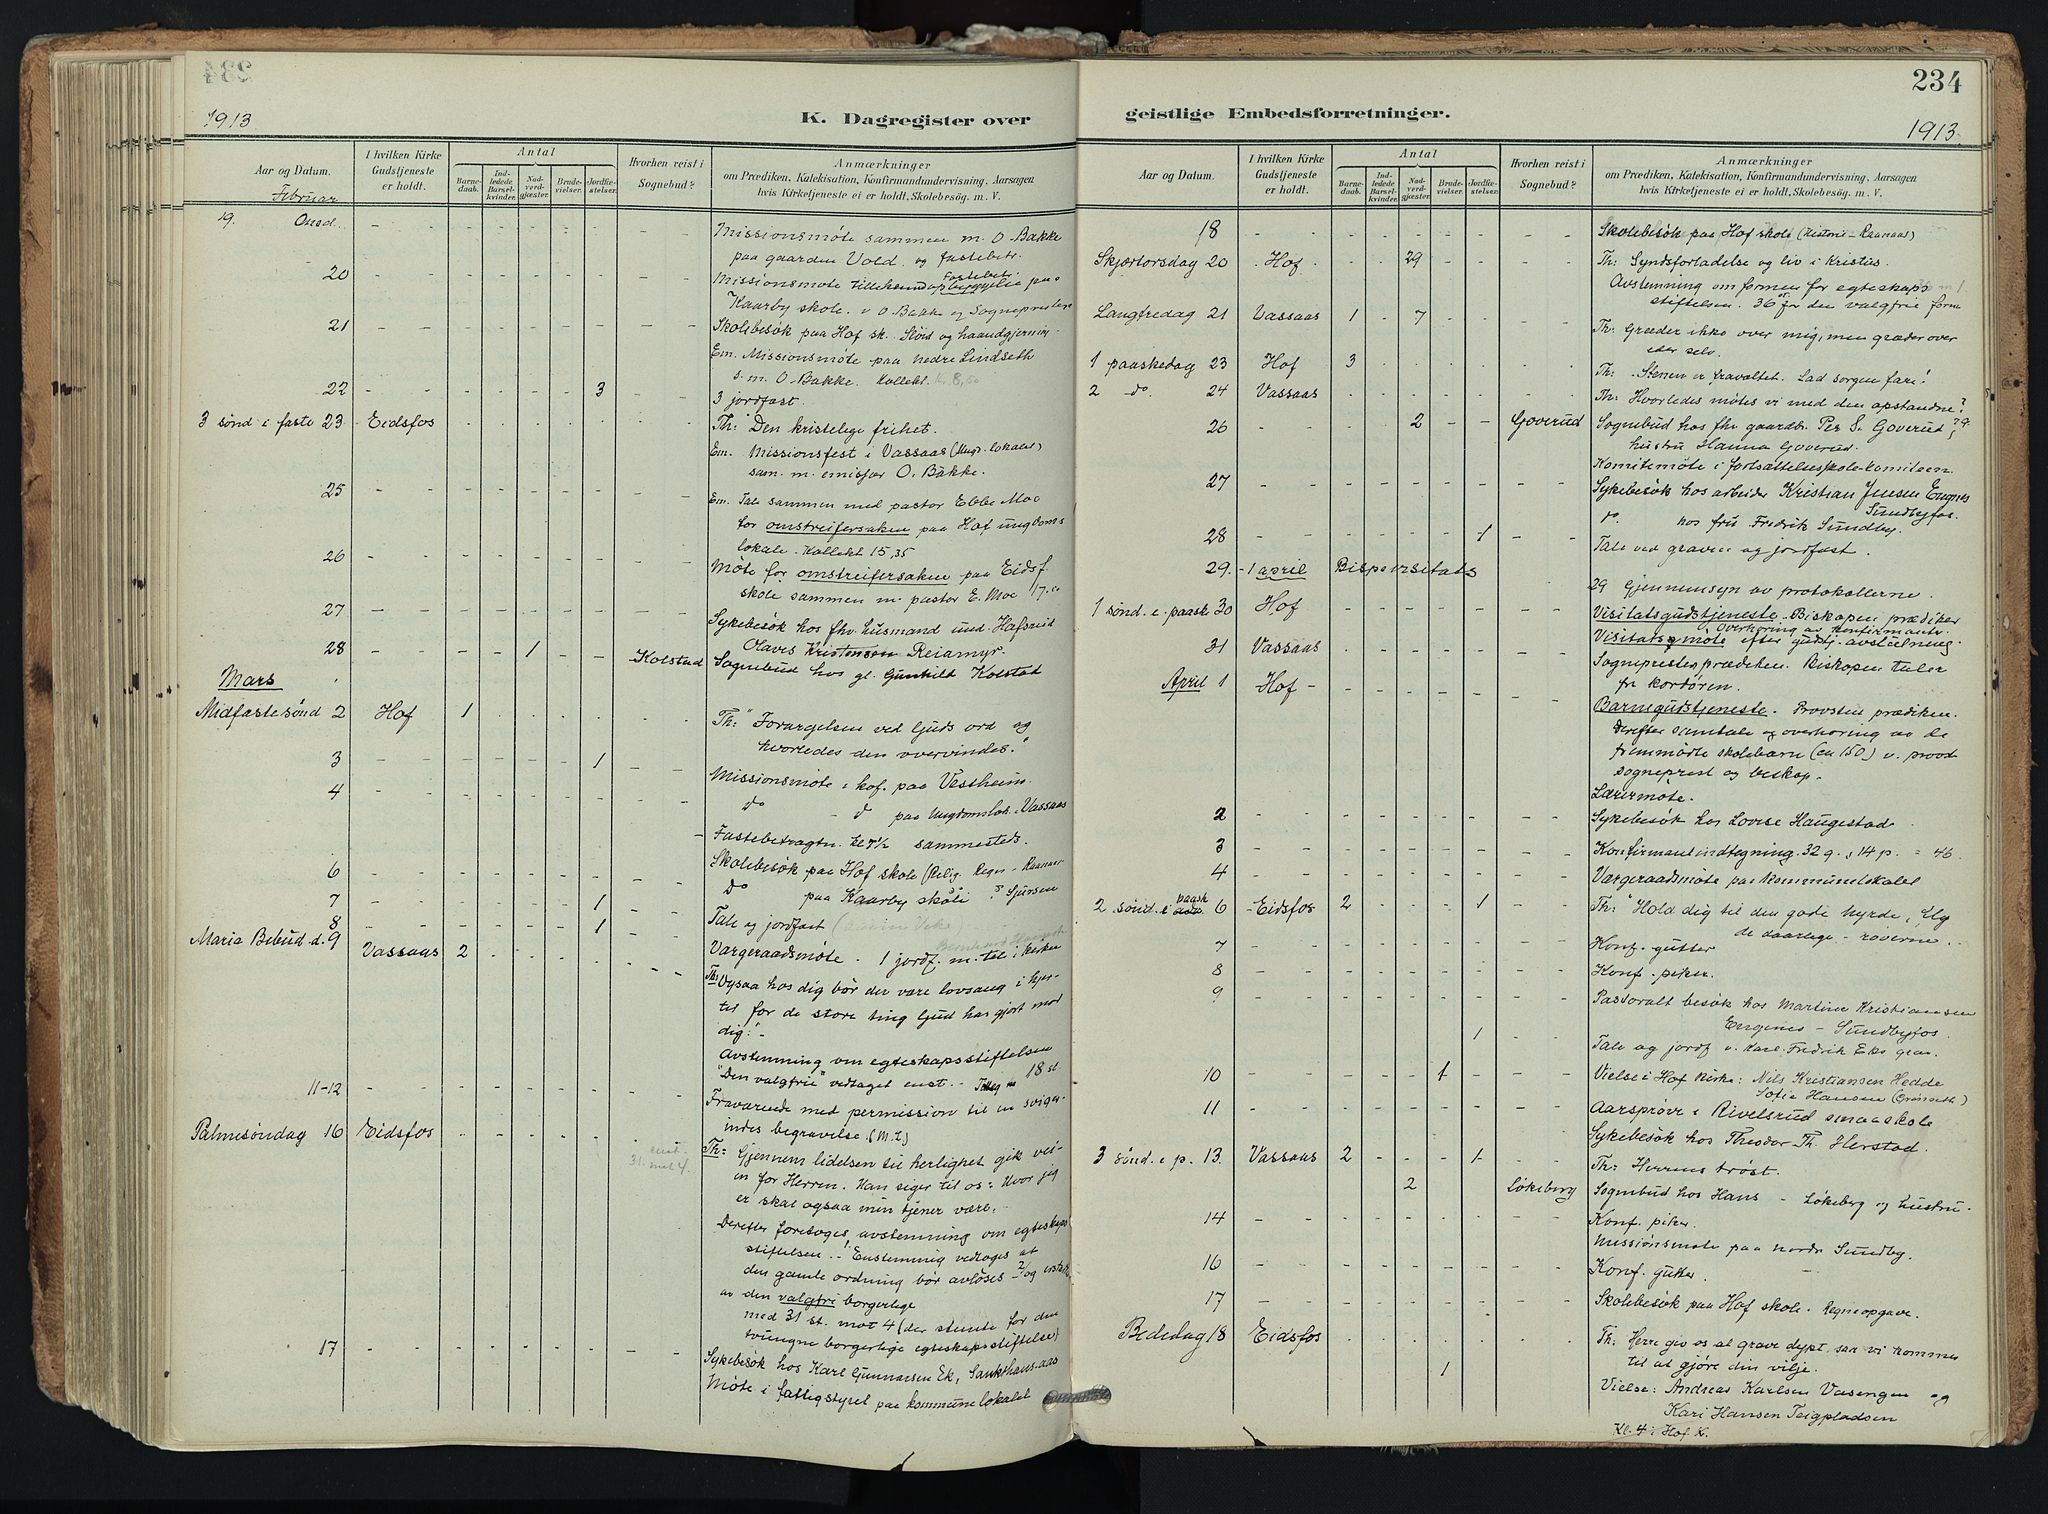 234
1913
K. Dagregister over
Aar og Datum.
Februar
I hvilken Kirke Gudstjeneste er holdt.
Antal
Barnedaab.
Indledede Barselkvinder.
Nadverdgjester.
Brudevielser.
Jordfæstelser.
Hvorhen reist i Sognebud?
Anmærkninger
om Prædiken, Katekisation, Konfirmandundervisning, Aarsagen
hvis Kirketjeneste ei er holdt, Skolebesøg. m. V.
19. Onsd. Missionsmöte sammen m. O. Bakke
paa gaarden Vold og fastebetr.
20 Missionsmöte paa
Kaarby skole. v O Bakke og Sognepresten
21 Skolebesök paa Hof sk. Slöid og haandgjerning
Em. Missionsmöte paa nedre Lindseth
s. m. O Bakke. Kollekt Kr. 8,50
22 3 3 jordfast.
3 sönd i faste 23 Eidsfos Th: Den kristelige frihet.
Em. Missionsfest i Vassaas (Ungd. lokalet)
sam. m. emisær O. Bakke.
25 Em. Tale sammen med pastor Ebbe Moe
for omstreifersaken paa Hof ungdoms
lokale. Kollekt 15,35
26 Möte for omstreifersaken paa Eidsf
skole sammen m. pastor E. Moe 17.00
27 Sykebesök hos fhv. husmand und. Hafsrud
Olaves Kristensen Reiamyr.
28 1 Kolstad Sognebud hos gl. Gunhild Kolstad
Mars
Midfastesönd 2 Hof 1 Th: "Forargelsen ved Guds ord og
hvorledes den overvindes."
3 1 Missionsmöte i hof. paa Vestheim.
4 do d paa Ungdomslok. i Vassaas
Fastebetragtn. kl 7½ sammesteds.
6 Skolebesök paa Hof skole (Relig. Regn - Raanaas
7 1 do paa Kaarby skole Sjursen
8 1 Tale og jordfast
Maria Bebud. d. 9 Vassaas 2 Værgeraadsmöte. 1 jordf. m. til i kirken
Th: Ogsaa hos dig bör der være lovsang i hjer-
tet for de store ting Gud har gjort mot
dig!
Avstemning om egteskapsstiftelsen
"Den valgfrie" vedtaget enst. 18 st.
11-12 Fraværende med permission til en sviger-
indes begravelse. (M.L)
Palmesöndag 16 Eidsfos enst. 31 mot 4. Th: Gjennem lidelsen til herlighet gik vei-
en for Herren. Han siger til os: Hvor jeg
er skal ogsaa min tjener være.
Derefter foretoges avstemning om egteskaps
stiftelsen. - Enstemmig vedtoges at
den gamle ordning bör avlöses og erstattes
av den valgfri borgerlige
med 31 st. mot 4 (der stemte for den
tvungne borgerlige egteskapsstiftelse)
17 Sykebesök hos Karl Gunnarsen Ek, Sankthansaas
Möte i fattigstyret paa kommunelokalet
234
geistlige Embedsforretninger.
1913.
Aar og Datum.
I hvilken Kirke Gudstjeneste er holdt.
Antal
Barnedaab.
Indledede Barselkvinder.
Nadverdgjæster.
Brudevielser.
Jordfæstelser.
Hvorhen reist i Sognebud?
Anmærkninger
om Prædiken, Katekisation, Konfirmandundervisning, Aarsagen
hvis Kirketjeneste ei er holdt, Skolebesøg. m. V.
18 Skolebesök paa Hof skole (Historie - Raanaas)
Skjærtorsdag 20 Hof 29 Th: Syndsforladelse og liv i Kristus.
Avstemning om formen for egteskaps
stiftelsen. 36 for den valgfrie form
Langfredag 21 Vassaas 1 7 Th: Græder ikke over mig, men græder over
eder selv.
1 paaskedag 23 Hof 3 Th: Stenen er fravæltet. Lad sorgen fare!
2 do. 24 Vassaas Th: Hvorledes mötes vi med den opstandne?
26 2 Goverud Sognebud hos fhv gaardbr. Per S. Goverud og
hustru Hanna Goverud.
Komitemöte i fortsættelsesskolekomiteen.
27 Sykebesök hos arbeider Kristian Jensen Engnes
Sundbyfos.
do. hos fru Fredrik Sundby.
28 1 Tale ved graven og jordfast.
29. - 1 april Bispevisitats 29 Gjennemsyn av protokollerne.
1 sönd. e. paask 30 Hof Visitatsgudstjeneste. Biskopen prædiker
Overhöring av konfirmanter
Visitatsmöte efter gudstj. avslutning
31 Vassaas Sognepresten prædiken. Biskopen taler
fr kordören.
April 1 Hof Barnegudstjeneste. Provsten prædiken.
Derefter samtale og overhöring av de
fremmödte skolebarn (ca 150) v. provst
sogneprest og biskop.
Lærermöte.
2 Sykebesök hos Lovise Haugestad
3 Konfirmantindtegning. 32 g. 14 p. = 46.
4 Værgeraadsmöte paa kommunelokalet
2 sönd. e paask 6 Eidsfos 2 1 Th: "Hold dig til den gode hyrde,
de daarlige - röverne.
7 Konf. gutter
8 Konf. piker.
9 Pastoralt besök hos Martine Kristiansen
Engenes - Sundbyfos.
1 Tale og jordf v. Karl Fredrik Eks grav.
10 1 Vielse i Hof kirke: Nils Kristiansen Hedde
Sofie Hansen (Grönseth)
11 Aarspröve i Rivelsrud smaaskole
Sykebesök hos Theodor Th. Herstad.
3 sönd. e p. 13. Vassaas 2 1 Th: Herrens tröst.
2 Lökeberg Sognebud hos Hans - Lökeberg og hustru.
14 Konf. piker.
Missionsmöte paa nordr Sundby.
16 Konf. gutter.
17 Skolebesök paa Hof skole. Regneopgave.
Bededag 18 Eidsfos Th: Herre giv os at grave dypt saa vi kommer
til at gjöre din vilje.
1 Vielse: Andreas Karlsen Vasengen og
Kari Hansen Teigpladsen
Kl. 4 i Hof K.